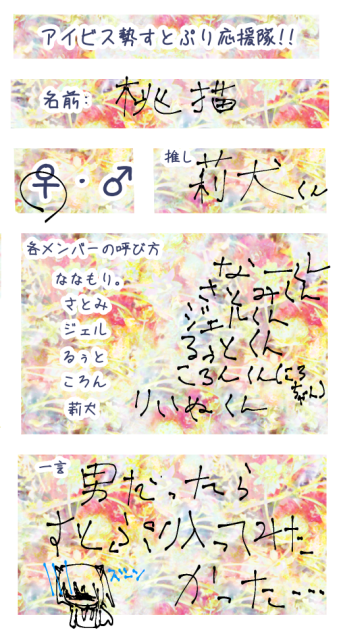 アイビス勢すとぷり応援隊!!
名前: 桃描
♀・♂
推し 莉犬くん
各メンバーの呼び方
ななもり。 なーくん
さとみ さとみくん
ジェル ジェルくん
るぅと るぅとくん
ころん ころんくん(ころちゃん)
莉犬 りいぬくん
一言
男だったら
すとぷり入ってみた
かった…
ズーン